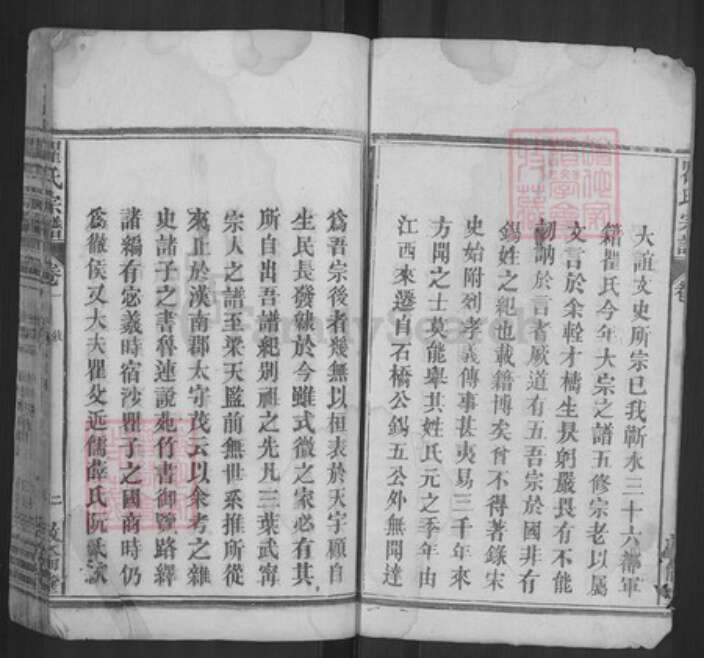 大誼文史所宗已我蘄水三十六都軍
籍瞿氏今年大宗之譜五修宗老以屬
文言於余輇才樗生狀躬嚴畏有不能
訥於言者厥道有五吾宗於國非有
錫姓之紀也載籍博矣曾不得著錄宋
史始附列孝義傳事甚夷易三千年來
方聞之士莫能舉其姓氏元之季年由
江西來遷自石橋公錫五公外無聞達
爲吾宗後者幾無以桓表於天宇顧自
生民長發綠於今雖式微之家必有其
所自出吾譜紀別祖之先凡三葉武甯
宗人之譜至梁天監前無世系推所從
來止於漢南郡太守茂云以余考之雜
史諸子之書科連說苑竹書御覽路繹
諸編有宓羲時宿沙瞿子之國商時仍
爲徹侯又大夫瞿父近儒薛氏阮氏款
瞿氏宗譜
卷一
敘
二
瞿氏宗譜
卷
FamilySearch